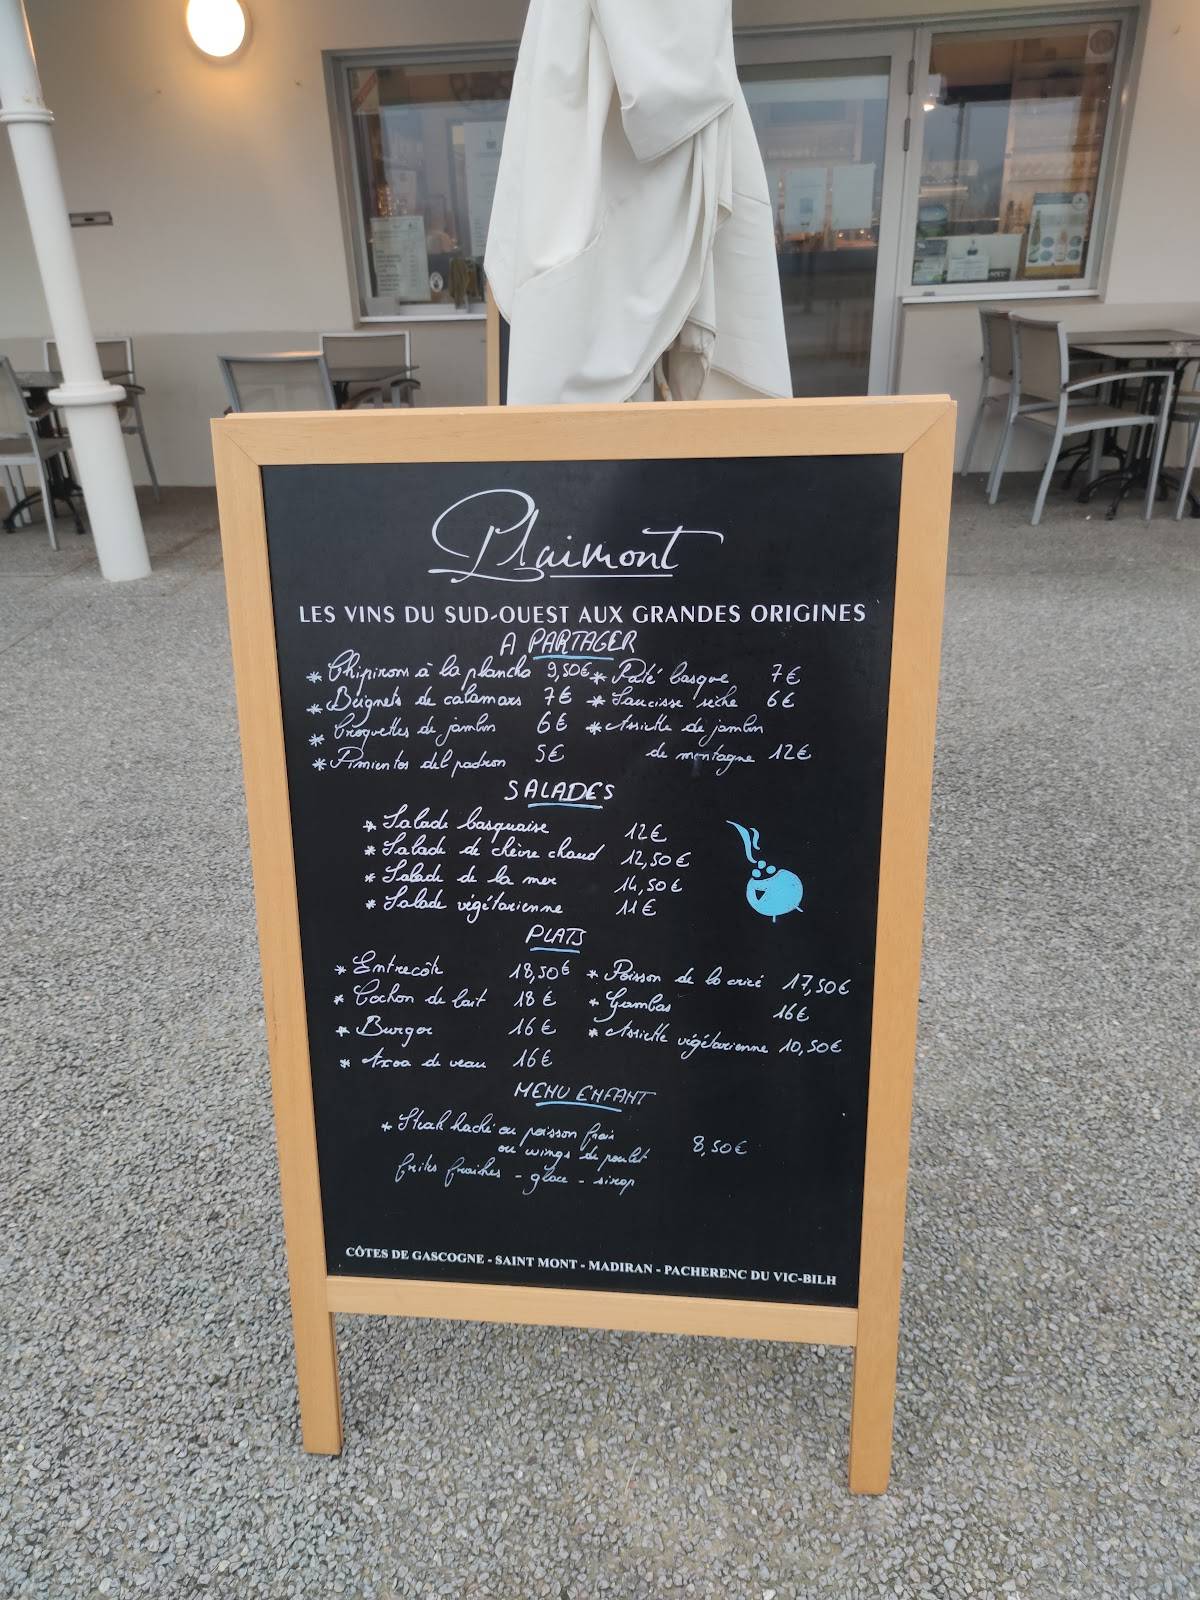 Plaimont
LES VINS DU SUD-OUEST AUX GRANDES ORIGINES
A PARTAGER
* Chipirons à la plancha 9,50€
* Beignets de calamars 7€
* Croquettes de jambon 6€
* Pimientos del padron 5€
* Pâté basque 7€
* Saucisse sèche 6€
* Assiette de jambon
de montagne 12€
SALADES
* Salade basquaise 12€
* Salade de chèvre chaud 12,50€
* Salade de la mer 14,50€
* Salade végétarienne 11€
PLATS
* Entrecôte 18,50€
* Cochon de lait 18€
* Burger 16€
* Axoa de veau 16€
* Poisson de la criée 17,50€
* Gambas 16€
* Assiette végétarienne 10,50€
MENU ENFANT
* Steak haché ou poisson frais
ou wings de poulet 8,50€
frites fraîches - glace - sirop
CÔTES DE GASCOGNE - SAINT MONT - MADIRAN - PACHERENC DU VIC-BILH